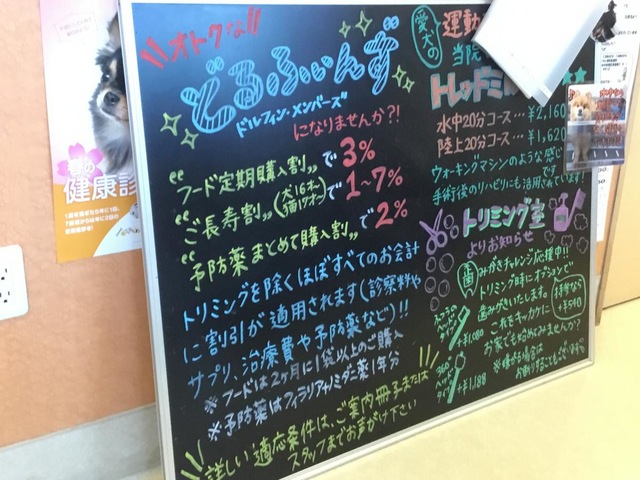 オトクな!!
どるふぃんず
ドルフィン・メンバーズ
になりませんか?!
“フード定期購入割„で3%
“ご長寿割„(犬16才 猫17才)で1~7%
“予防薬まとめて購入割„で2%
トリミングを除くほぼすべてのお会計
に割引が適用されます(診察料や
サプリ、治療費や予防薬など)!!
※フードは2ヶ月に1袋以上のご購入
※予防薬はフィラリア+ノミダニ薬1年分
詳しい適応条件は、ご案内冊子または
スタッフまでお声がけ下さい
愛犬の
運動
当院
トレッドミル
水中20分コース…¥2,160
陸上20分コース…¥1,620
ウォーキングマシンのような感じ
手術後のリハビリにも活用されています!
トリミング室
よりお知らせ
歯みがきチャレンジ応援中!!
トリミング時にオプションで
歯みがきいたします。
これをキッカケに
お家でも始めてみませんか?
※嫌がる場合は
お断りすることもございます
+¥540
+¥1,080
360°
ヘッド
タイプ
+¥1,188
春の
健康診